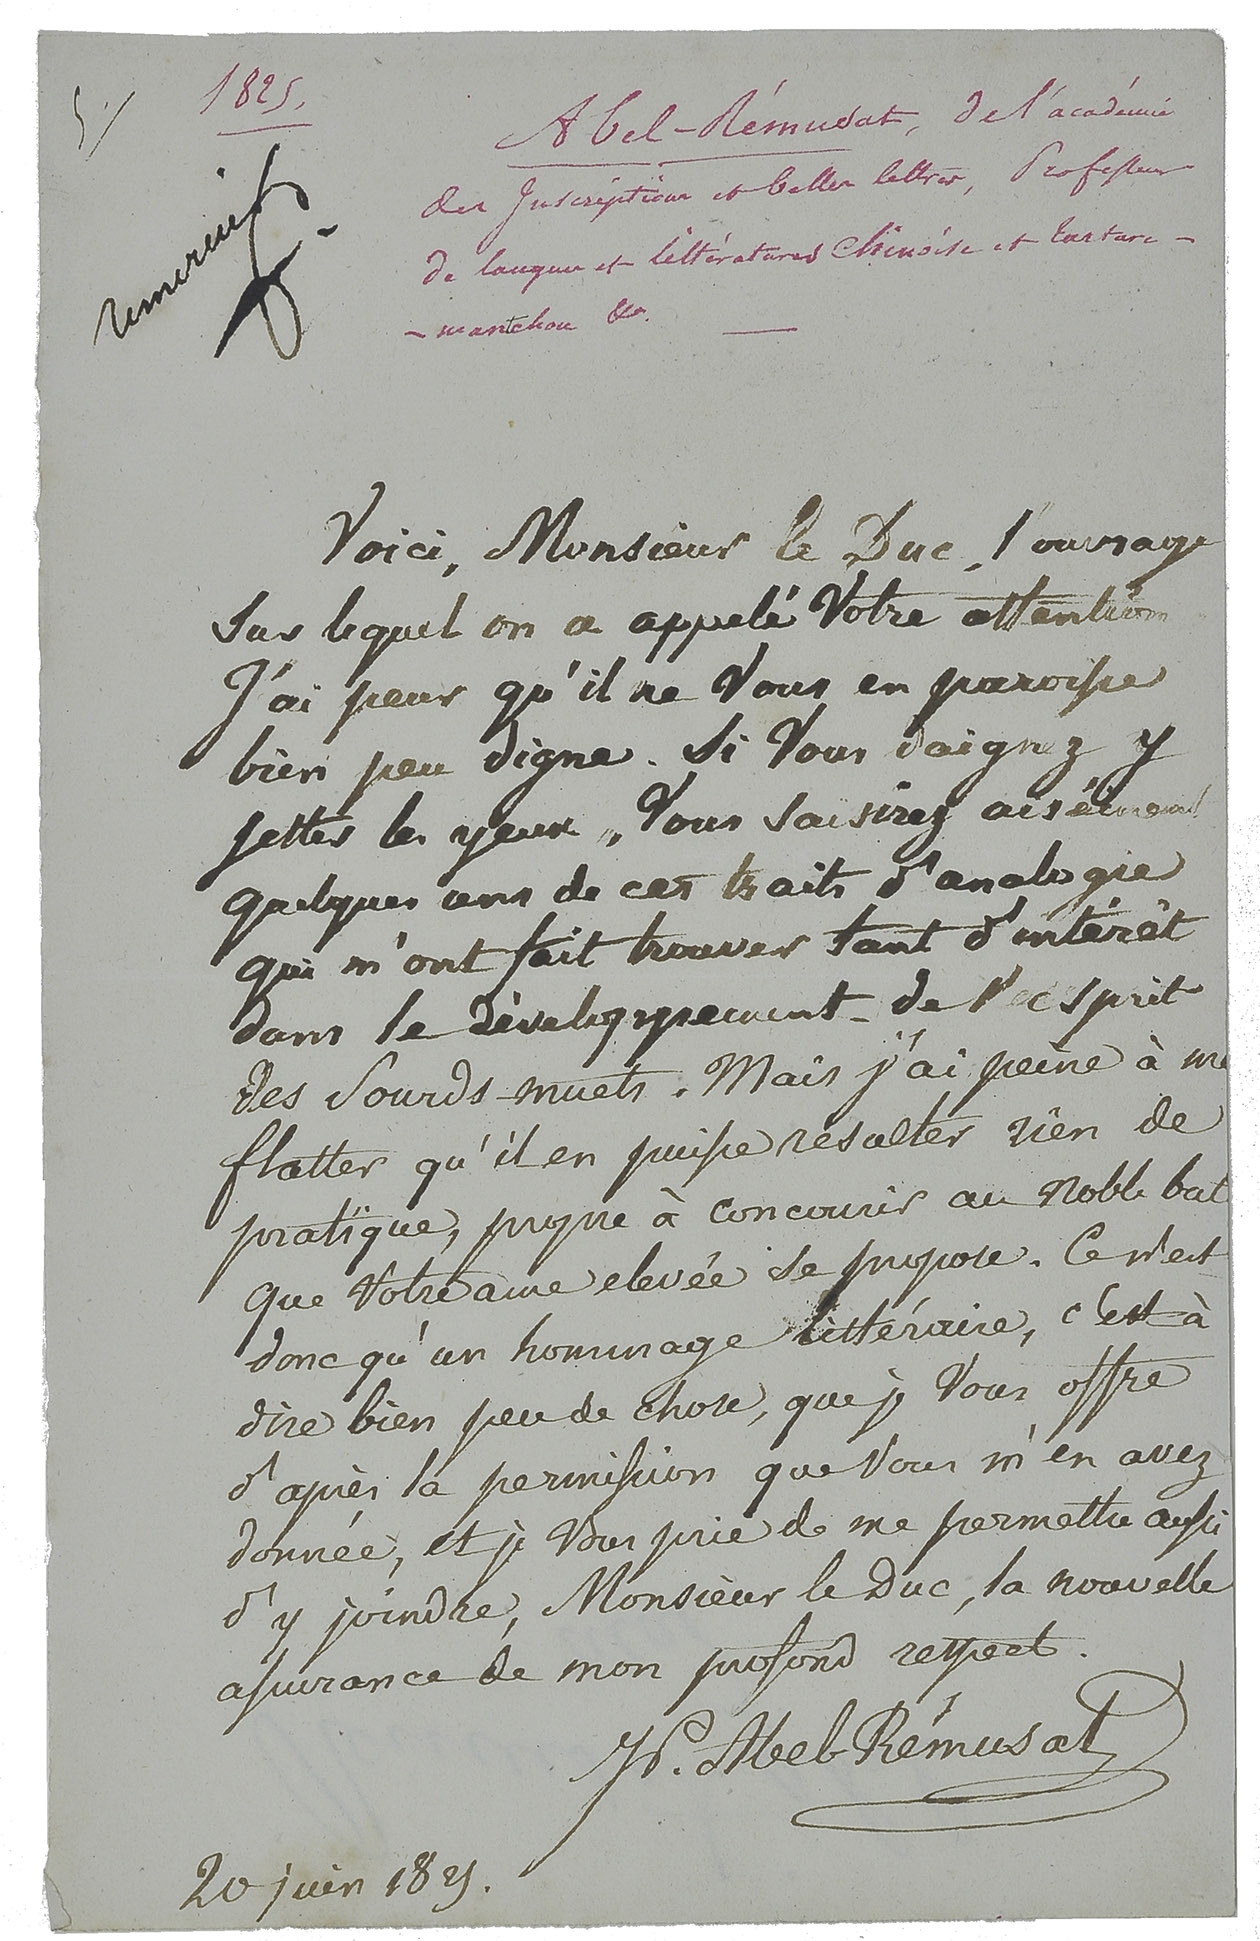 1825.
Abel-Rémusat, de l'académie
des Inscriptions et belles lettres, Professeur
de langue et littératures Chinoise et tartare -
- mantchou &a.
Voici, Monsieur le Duc, l'ouvrage
sur lequel on a appelé Votre attention
J'ai peur qu'il ne Vous en paroisse
bien peu digne. Si Vous daignez y
jetter les yeux, Vous saisirez aisément
quelques uns de ces traits d'analogie
qui m'ont fait trouver tant d'intérêt
dans le développement de l'esprit
des Sourds-muets. Mais j'ai peine à me
flatter qu'il en puisse résulter rien de
pratique, propre à concourir au noble but
que Votre ame elevée se propose. Ce n'est
donc qu'un hommage littéraire, c'est à
dire bien peu de chose, que je Vous offre
d'après la permission que Vous m'en avez
donnée, et je Vous prie de me permettre aussi
d'y joindre, Monsieur le Duc, la nouvelle
assurance de mon profond respect.
JP. Abel-Rémusat
20 juin 1825.